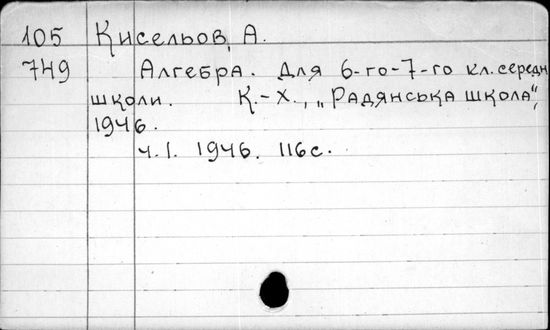 105 Кисельов, А.
749 Алгебра. Для 6-го-7-го кл. середн
школи. К.-Х., „Радянська школа",
1946.
ч.1. 1946. 116 с.